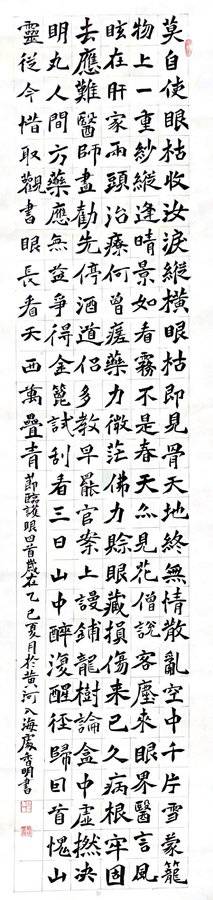 莫自使眼枯收汝淚縱橫眼枯即見骨天地終無情散亂空中千片雪蒙籠
物上一重紗縱逢晴景如看霧不是春天亦見花僧說客塵來眼界醫言風
眩在肝家兩頭治療何曾瘥藥力微茫佛力賒眼藏損傷來已久病根牢固
去應難醫師盡勸先停酒道侶多教早罷官案上謾鋪龍樹論盒中虛撚決
明丸人間方藥應無益爭得金篦試刮看三日山中醉復醒徑歸回首愧山
靈從今惜取觀書眼長看天西萬疊青節臨護眼四首歲在乙巳夏月於黄河入海處明書